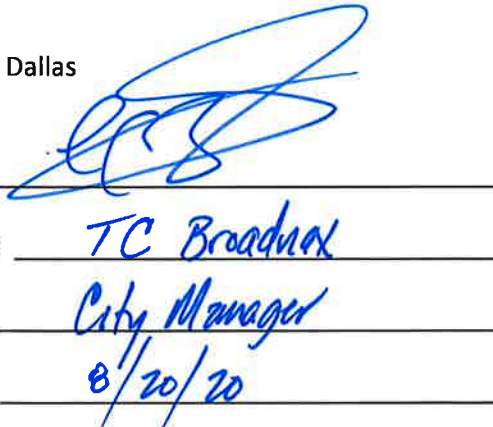 Dallas
TC Broadnax
City Manager
8/20/20